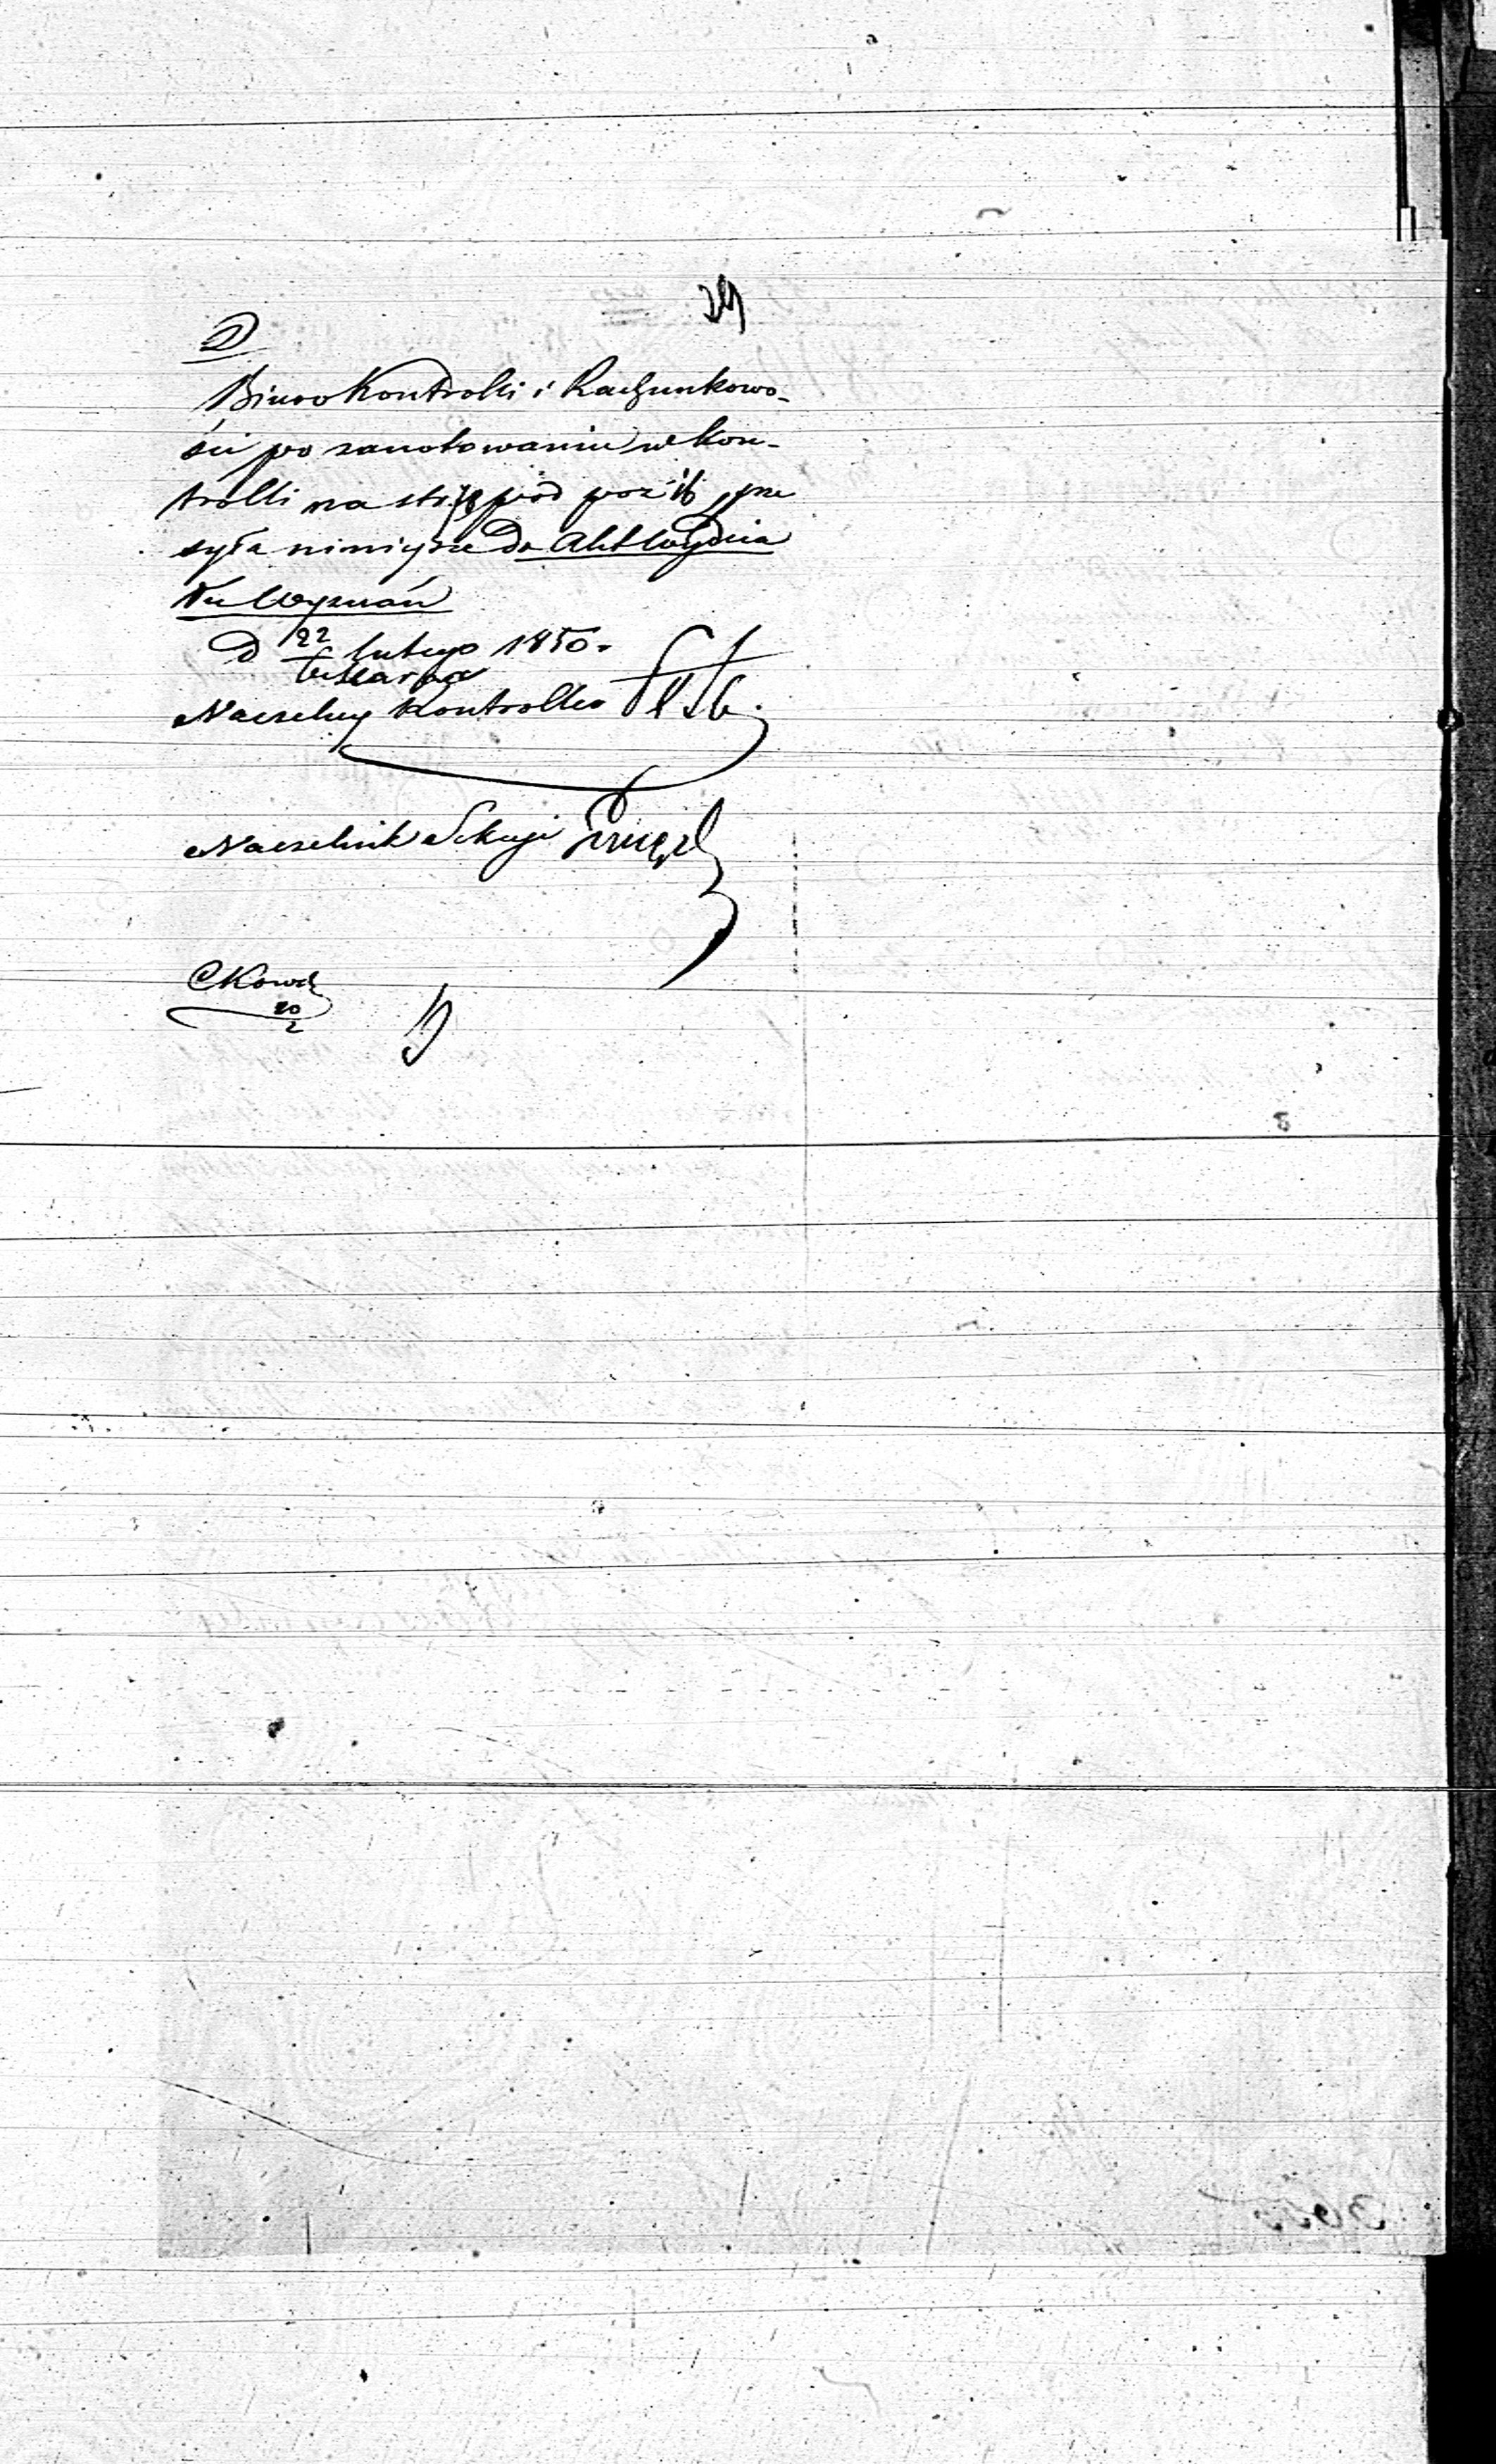 Biuro Kontrolli i Rachunkowo-
ści po zanotowaniu w kon-
trolli na str. pod poz. prze
syła niniejsze do Akt Wydzia
łu Wyznań
D 22 lutego 1850.
6 Marca
Naczelny Kontroller
Naczelnik Sekcyi
20
2